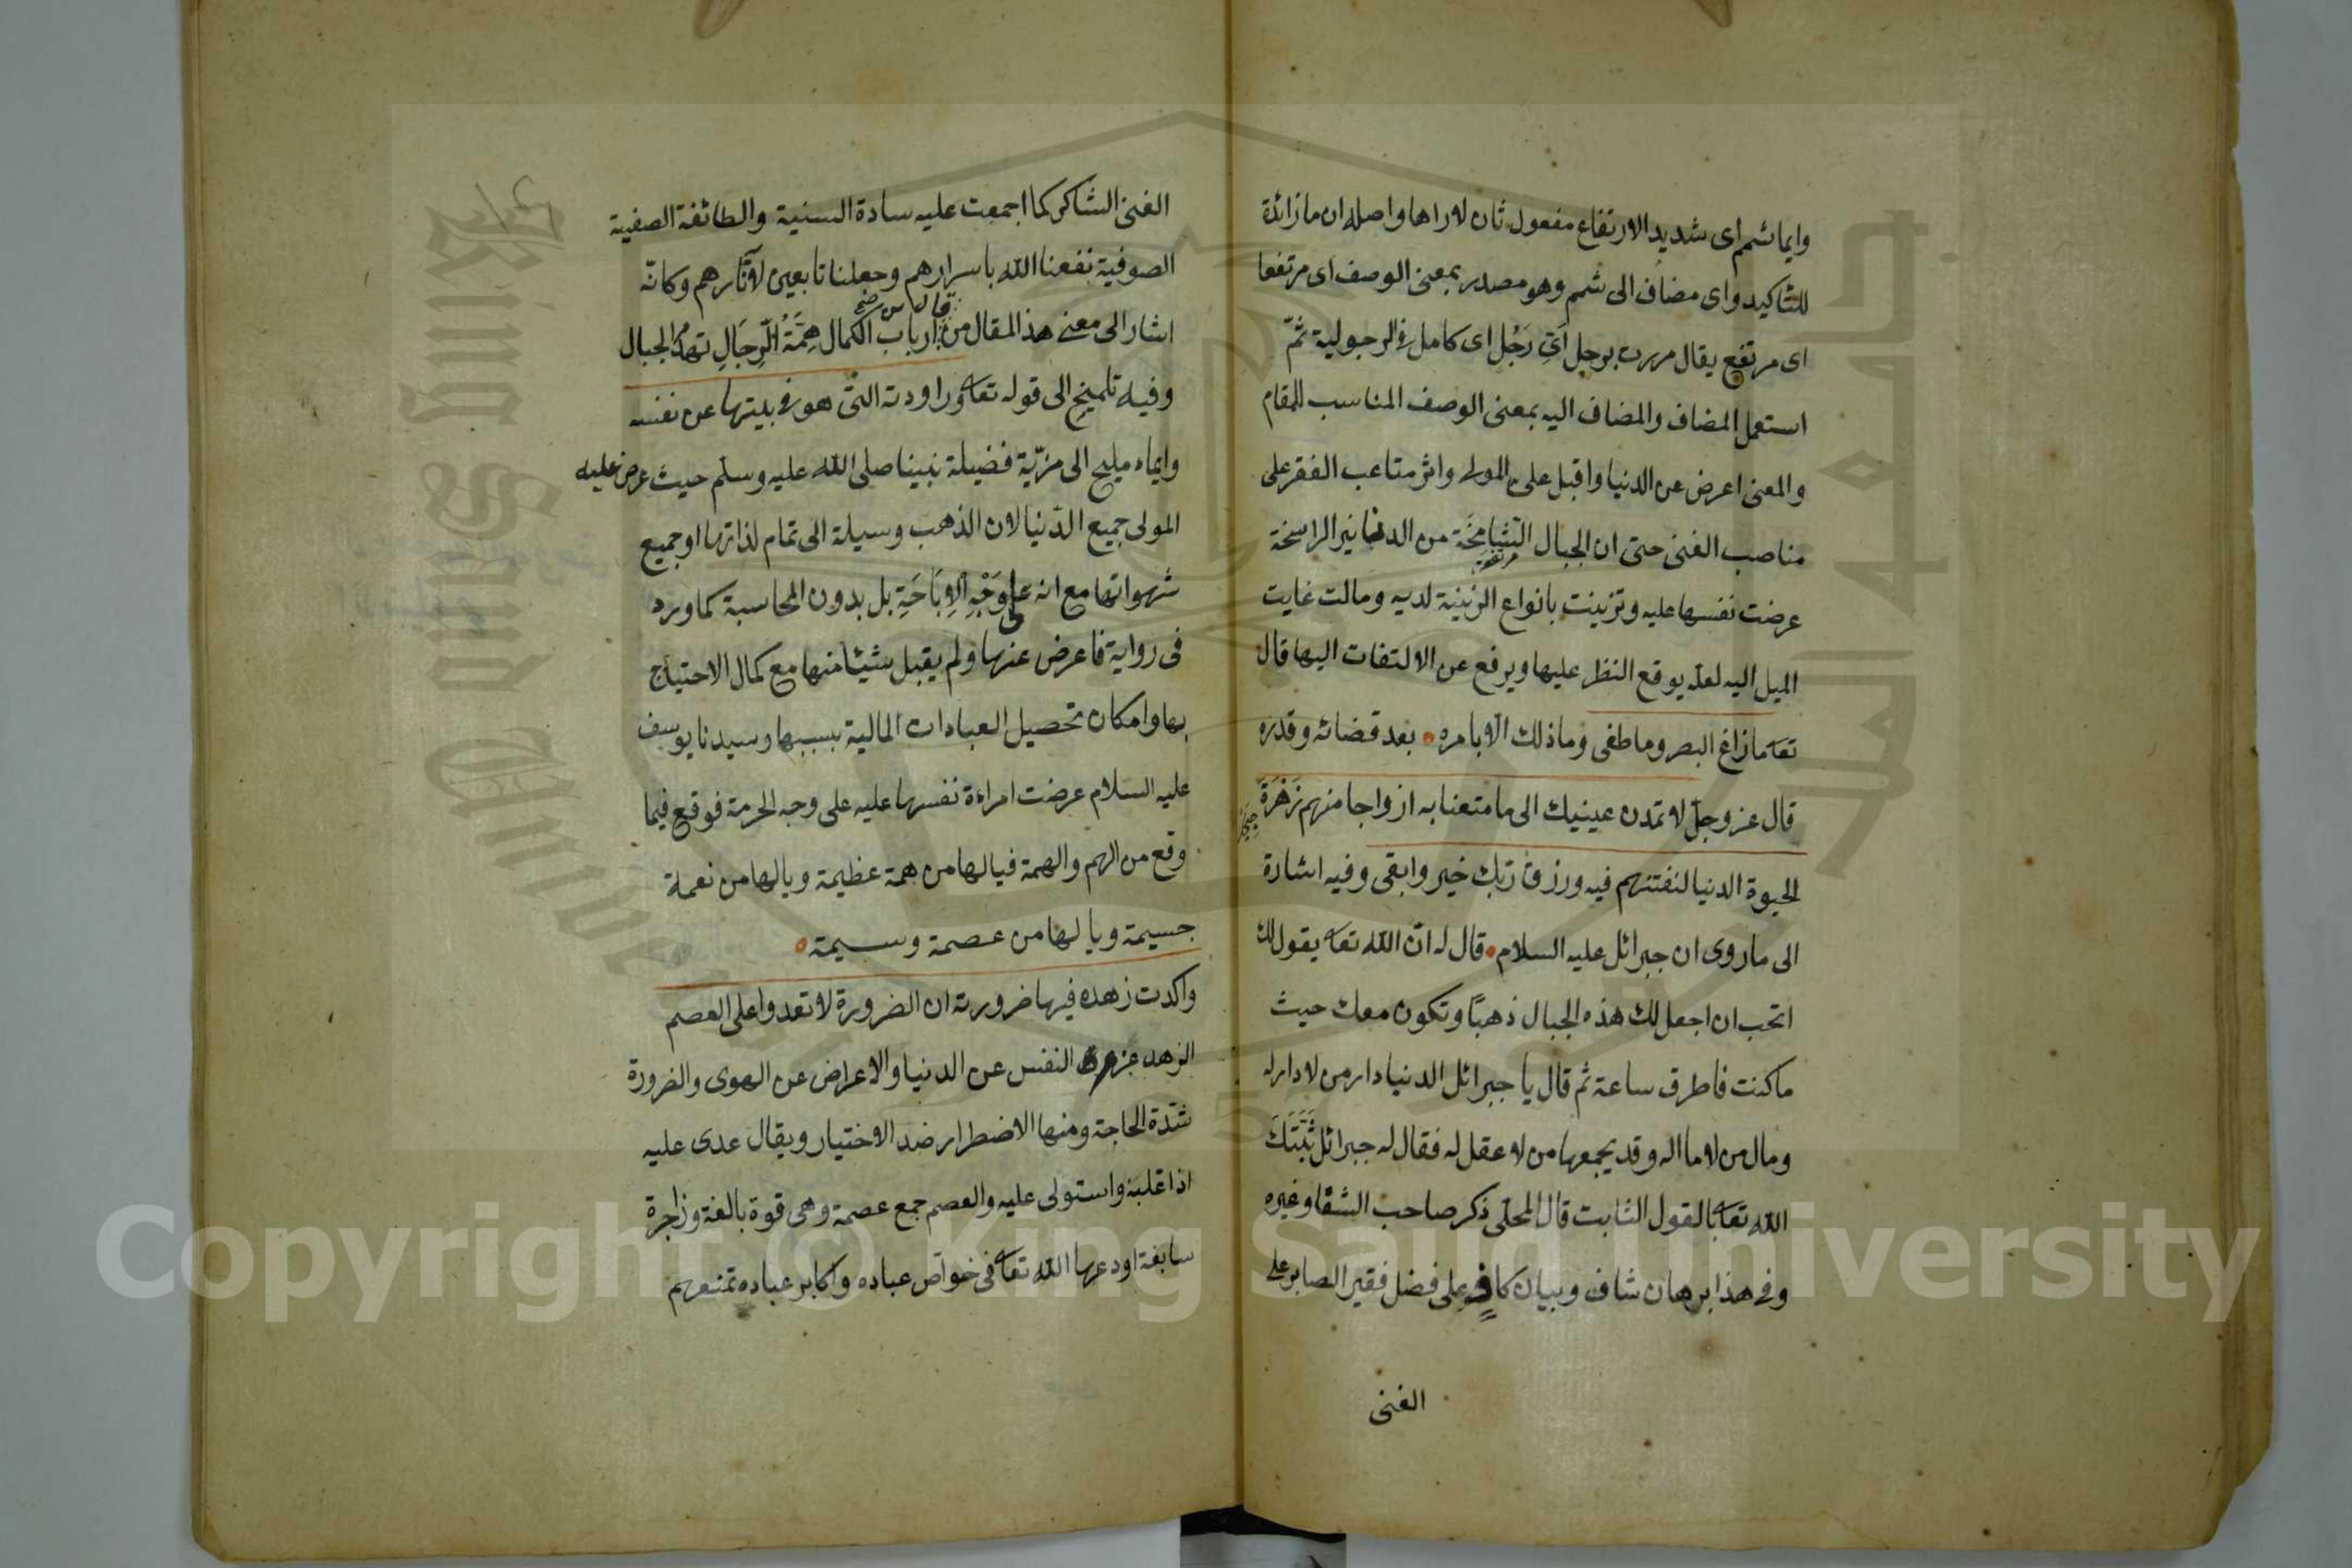 وايما شمم اى شديد الارتفاع مفعول ثان لاراها واصله ان ما زائدة
للتاكيد واى مضاف الى شمم وهو مصدر بمعنى الوصف اى مرتفعا
اى مرتفع يقال مررت برجل اَىِّ رَجُل اى كامل فى الرجولية ثمّ
استعمل المضاف والمضاف اليه بمعنى الوصف المناسب للمقام
والمعنى اعرض عن الدنيا واقبل على المولى واثر متاعب الفقر على
مناصب الغنى حتى ان الجبال الشامخَة من الدنانير الراسخة
مرتفعة
عرضت نفسها عليه وتزينت بانواع الزينة لديه ومالت غايت
الميل اليه لعله يوقع النظر عليها ويرفع عن الالتفات اليها قال
تعا ما زاغ البصر وما طغى وما ذلك الا بامره بعد قضائه وقدره
قال عز وجلّ لا تمدن عينيك الى ما متعنا به ازواجا منهم زَهْرَةَ
الحيوة الدنيا لنفتنهم فيه ورزق ربّك خير وابقى وفيه اشارة
الى ما روى ان جبرائل عليه السلام قال له انّ الله تعا يقول لك
اتحب ان اجعل لك هذه الجبال ذهبًا وتكون معك حيث
ما كنت فاطرق ساعة ثم قال يا جبرائل الدنيا دار من لا دار له
ومال من لا ما اله وقد يجمعها من لا عقل له فقال له جبرائل ثَبَّتَكَ
الله تعا بالقول الثابت قال المحلّى ذكر صاحب الشفا وغيره
وفى هذا برهان شاف وبيان كافٍ على فضل فقير الصابر على
الغنى
الغنى الشاكر كما اجمعت عليه سادة السنية والطائفة الصفية
الصوفية نفعنا الله باسرارهم وجعلنا تابعين لآثارهم وكانّه
اشار الى معنى هذ المقال من قال من ارباب الكمال هِمَّةُ الرِّجَالِ تهدُّ الجبال
وفيه تلميح الى قوله تعا وراودته التى هو فى بيتها عن نفسه
وايماء مليح الى مزيّة فضيلة نبينا صلى الله عليه وسلّم حيث عرض عليه
المولى جميع الدّنيا لان الذهب وسيلة الى تمام لذاتها او جميع
شهواتها مع انه على وَجْهِ الاِبَاحَةِ بل بدون المحاسبة كما ورد
فى رواية فاعرض عنها ولم يقبل شيئا منها مع كمال الاحتياج
بها وامكان تحصيل العبادات المالية بسببها وسيدنا يوسف
عليه السلام عرضت امراءة نفسها عليه على وجه الحرمة فوقع فيما
وقع من الهم والهمة فيا لها من همة عظيمة ويا لها من نعمة
جسيمة ويا لها من عصمة وسيمة
واكدت زهده فيها ضرورته ان الضرورة لا تعدوا على العصم
الزهد النفس عن الدنيا والاعراض عن الهوى والضرورة
شدّة الحاجة ومنها الاضطرار ضد الاختيار ويقال عدى عليه
اذا غلبه واستولى عليه والعصم جمع عصمة وهى قوة بالغة وزاجرة
سابغة اودعها الله تعا فى خواص عباده واكابر عباده تمنعهم
King Saud University
Copyright © King Saud University